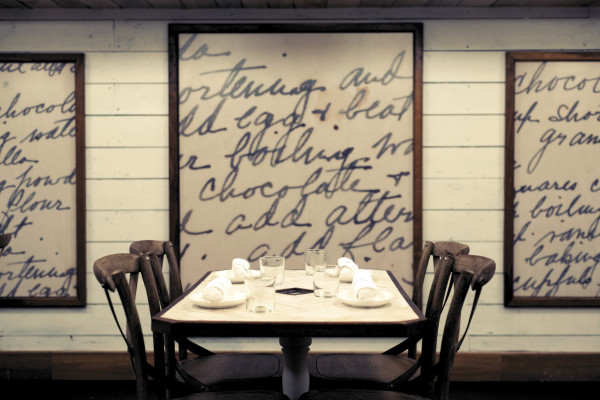 chocola
g wate
lla
g powd
flour
rtening
d eg
la
ortening and
dd egg & beat
r boiling wa
chocolate &
add alter
add fla
chocol
up sho
gran
uares c
boiling
van
baking
cupfuls